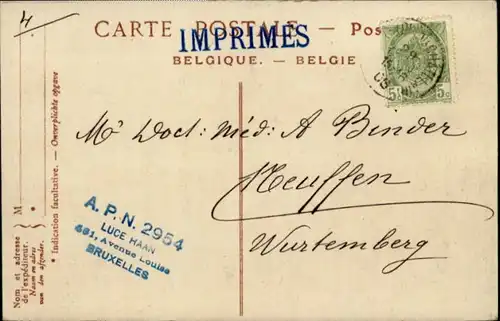 4.
CARTE POSTALE — Pos
IMPRIMES
BELGIQUE. — BELGIE
5c 5c
Mr Doct: Méd: A Binder
Neuffen
Wurtemberg
A. P. N. 2954
LUCE HAAN
Avenue Louise
BRUXELLES
M
* Indication facultative. — Onverplichte opgave
Nom et adresse
de l'expéditeur.
Naam en adres
van den afzender.